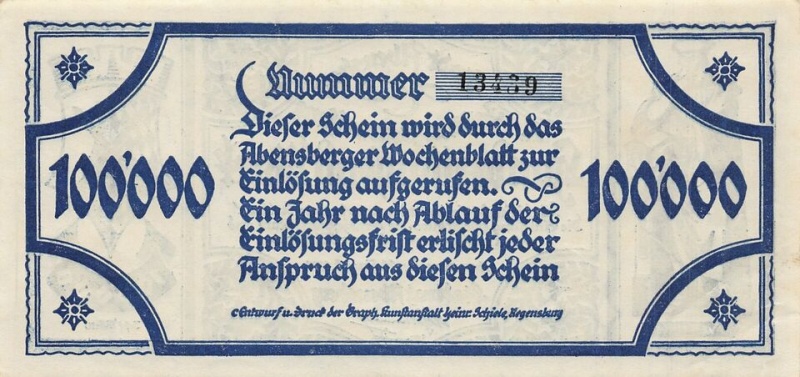 Nummer 13439
Dieser Schein wird durch das
Abensberger Wochenblatt zur
Einlösung aufgerufen.
100'000 100'000
Ein Jahr nach Ablauf der
Einlösungsfrist erlischt jeder
Anspruch aus diesen Schein
Entwurf u. Druck der Graph. Kunstanstalt Heinr. Schiele, Regensburg